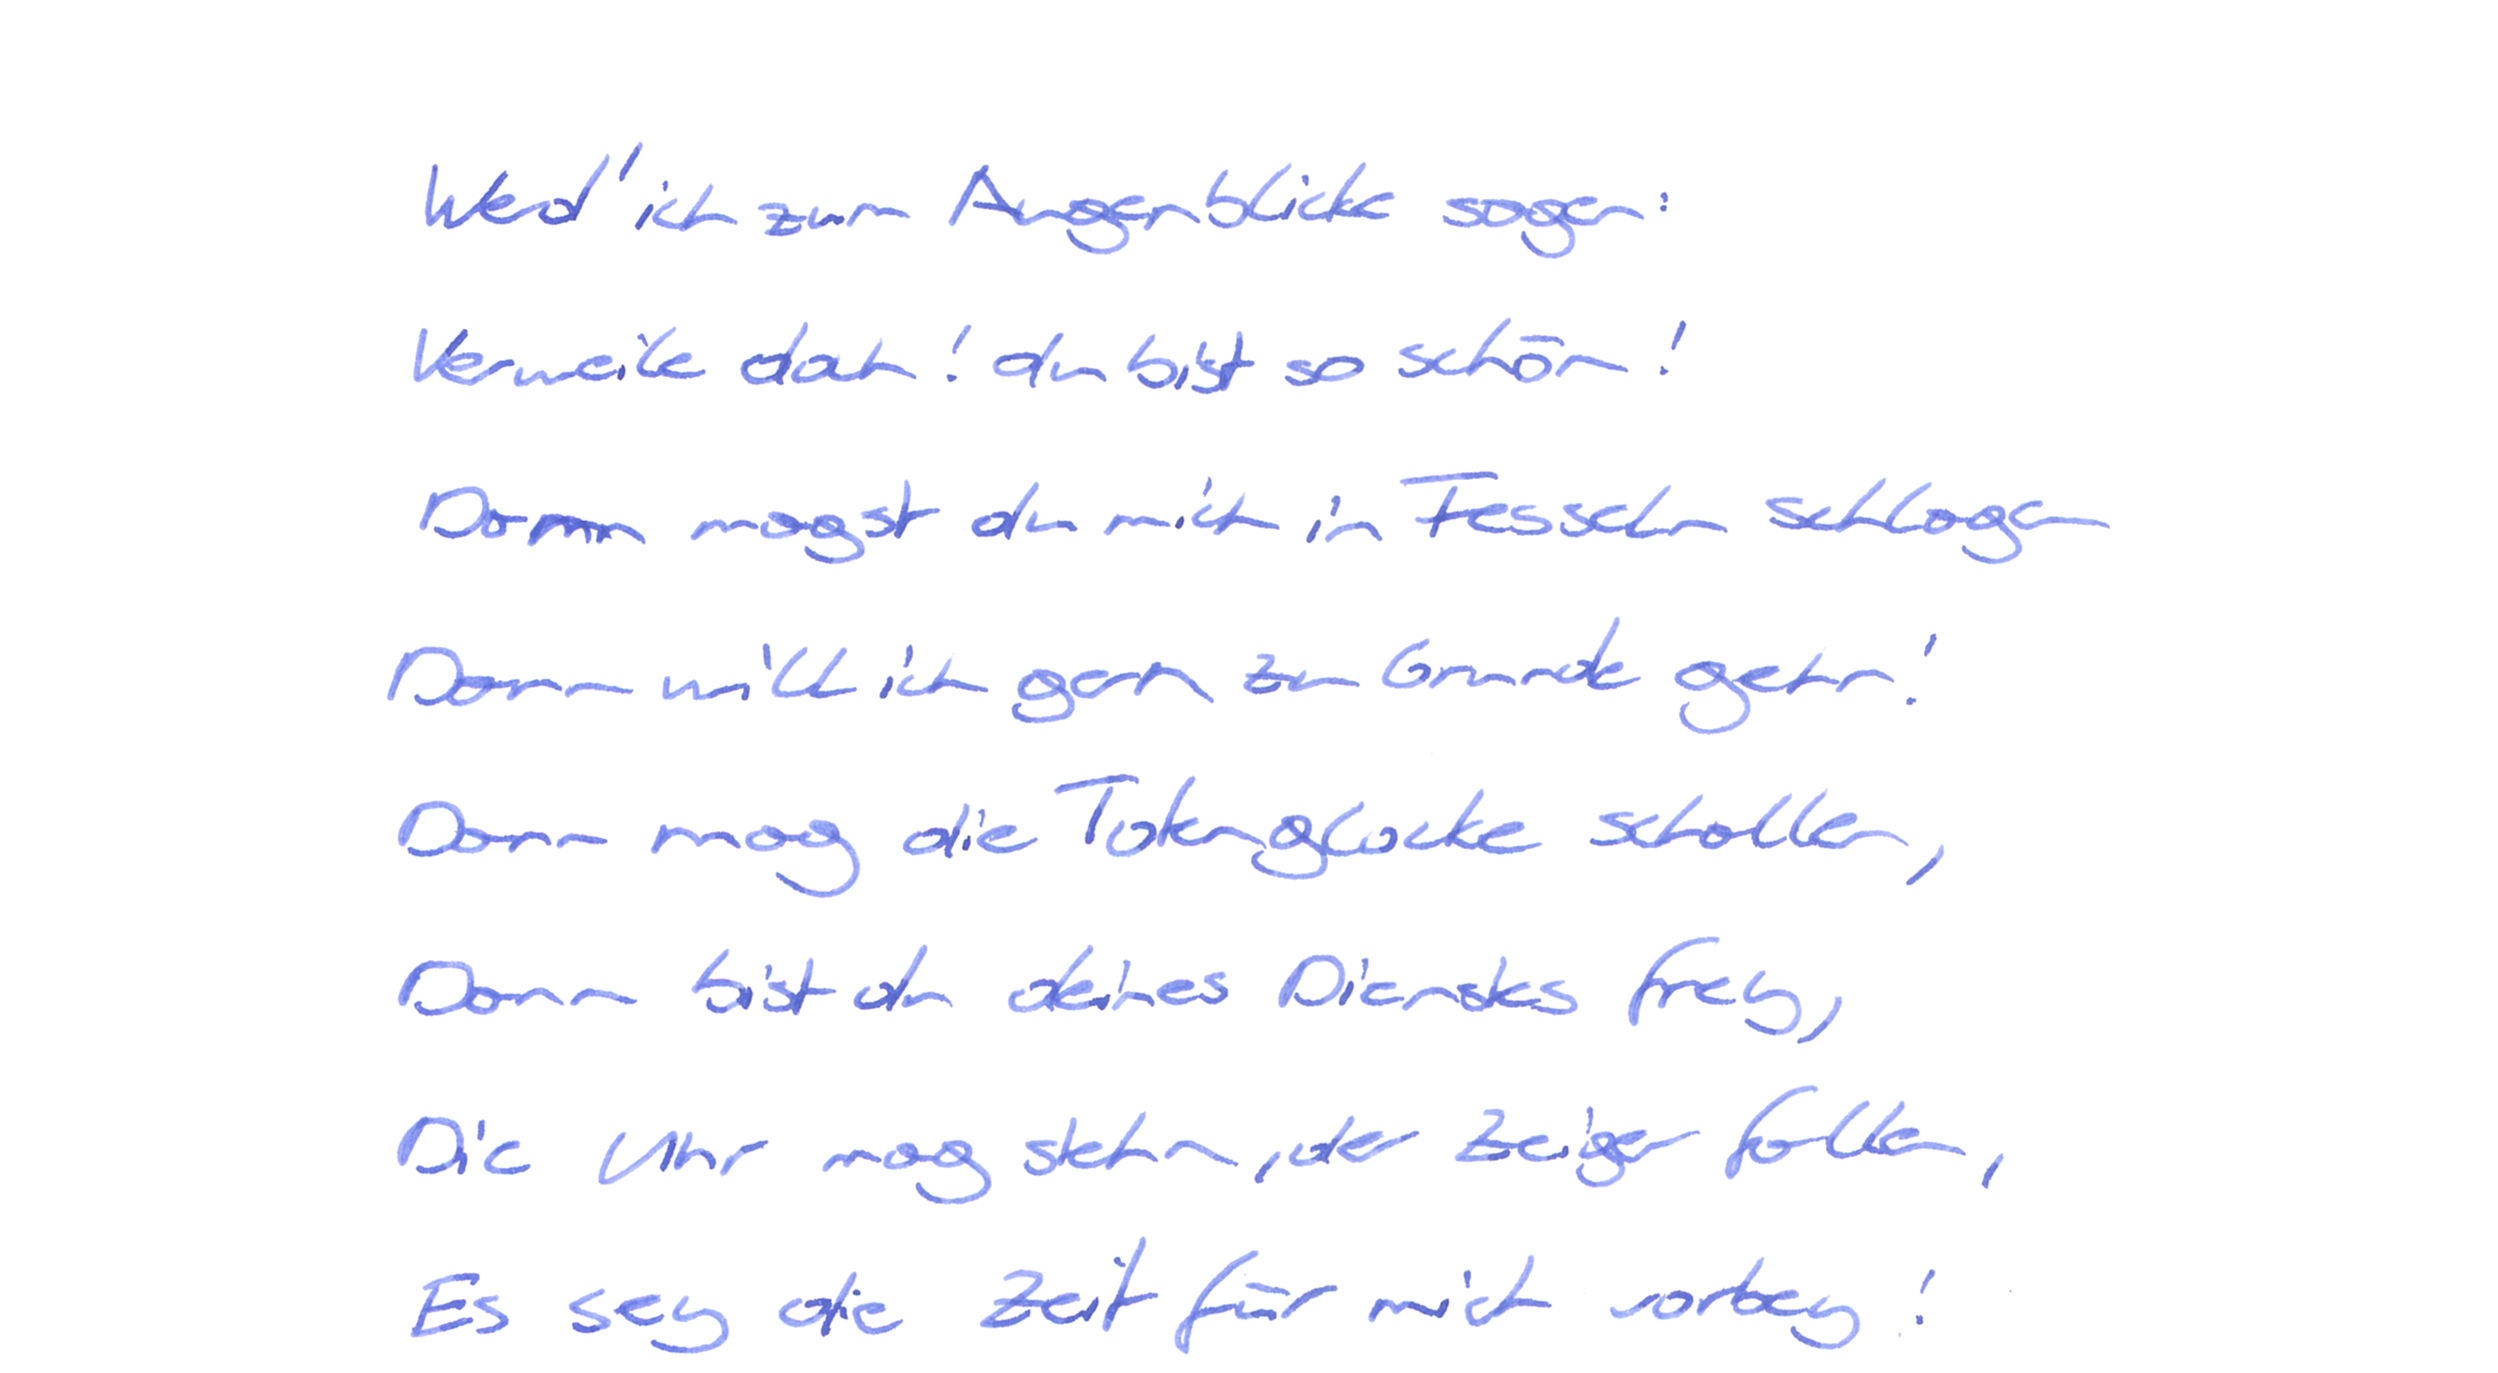 Werd' ich zum Augenblicke sagen:
Verweile doch! du bist so schön!
Dann magst du mich in Fesseln schlagen
Dann will ich gern zu Grunde gehn!
Dann mag die Totenglocke schallen,
Dann bist du deines Dienstes frey,
Die Uhr mag stehn, der Zeiger fallen,
Es sey die Zeit für mich vorbey!